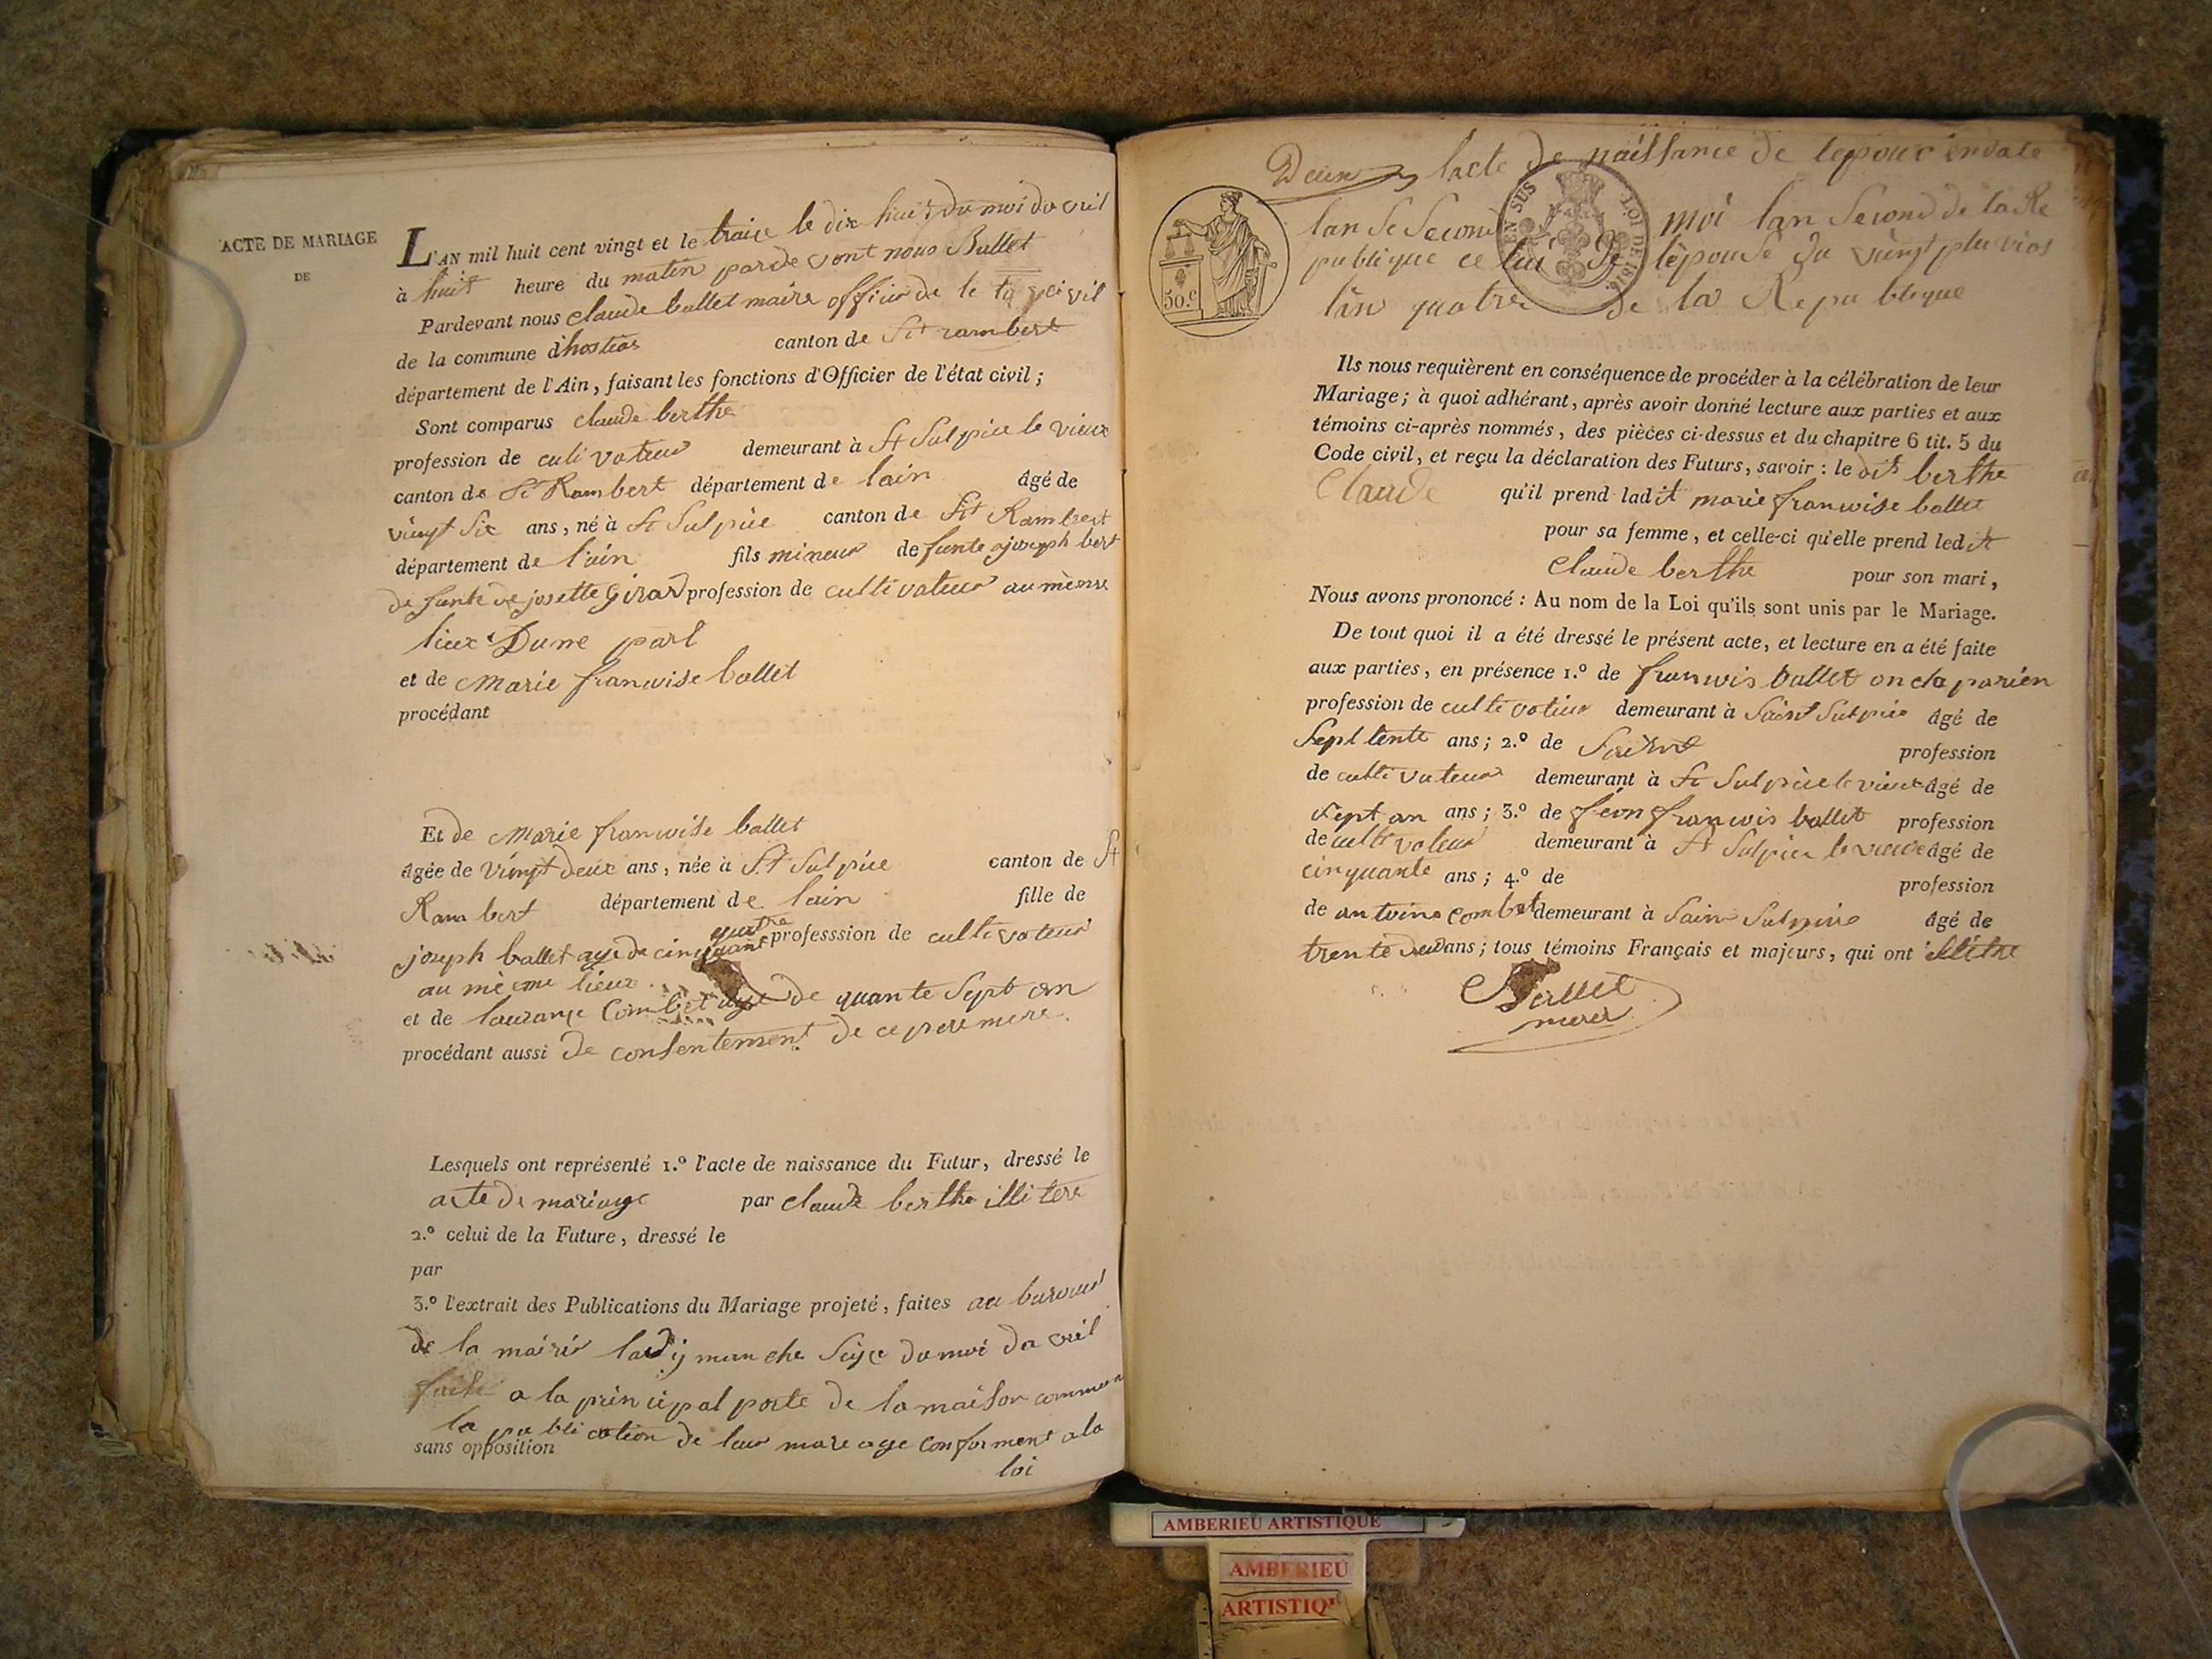 ACTE DE MARIAGE
DE
L'AN mil huit cent vingt et le traize le dix huit du moi davril
à huit heure du matin parde vont nous Ballet
Pardevant nous claude ballet maire officier de le civil
de la commune dhostias canton de St rambert
département de l'Ain, faisant les fonctions d'Officier de l'état civil;
Sont comparus claude berthe
profession de culti vateur demeurant à St Sulpice le vieux
canton de St Rambert département de lain âgé de
vingt six ans, né à St Sulpice canton de St Rambert
département de lain fils mineur de funte joseph bert
de funte de josette Girar profession de culti vateur au mème
lieux Dune part
et de Marie franwise ballet
procédant
Et de Marie franwise ballet
âgée de vingt deux ans, née à St Sulpice canton de St
Ram bert département de lain fille de
quatre
joseph ballet age de cinquant professsion de culti vateur
au mème lieux
et de lauranse Combet age de quante Sept an
procédant aussi de consentement de ce pere mere
Lesquels ont représenté 1.º l'acte de naissance du Futur, dressé le
acte de mariage par claude berthe illi tere
2.º celui de la Future, dressé le
par
3.º l'extrait des Publications du Mariage projeté, faites au bureau
de la mairie ladij man che Seize du moi da vril
faite a la prin cipal porte de la maison commun
la publi cation de leur mareage conforment a la
sans opposition
loi
Deux lacte de naissance de lepoux endate
EN SUS
LOI DE 1816.
50.c
lan Se Second moi lan Second de la Re
publique ce lui de lèpouse du vingt pluvios
lan quatre de la Republique
Ils nous requièrent en conséquence de procéder à la célébration de leur
Mariage; à quoi adhérant, après avoir donné lecture aux parties et aux
témoins ci-après nommés, des pièces ci-dessus et du chapitre 6 tit. 5 du
Code civil, et reçu la déclaration des Futurs, savoir: le dit berthe
Claude qu'il prend ladit marie franwise ballet
pour sa femme, et celle-ci qu'elle prend ledit
Claude berthe pour son mari,
Nous avons prononcé: Au nom de la Loi qu'ils sont unis par le Mariage.
De tout quoi il a été dressé le présent acte, et lecture en a été faite
aux parties, en présence 1.º de franwis ballet
profession de culti vateur demeurant à Saint Sulpice âgé de
Sept tente ans; 2.º de profession
de culti vateur demeurant à St Sulpice le vieux âgé de
Sept an ans; 3.º de franwis ballet profession
de culti vateur demeurant à St Sulpice le vieux âgé de
cinquante ans; 4.º de profession
de antoine combet demeurant à Sain Sulpice âgé de
trente deux ans; tous témoins Français et majeurs, qui ont
Ballet
merer
AMBERIEU ARTISTIQUE
AMBERIEU
ARTISTIQ